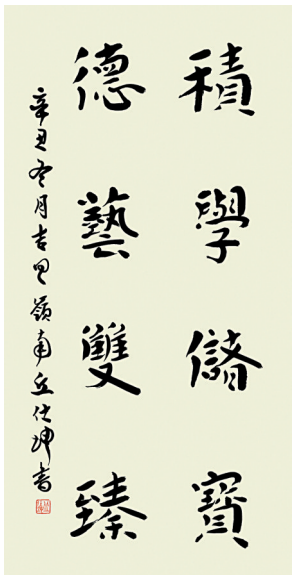 積學儲寶
德藝雙臻
辛丑冬月吉日嶺南丘仕坤書